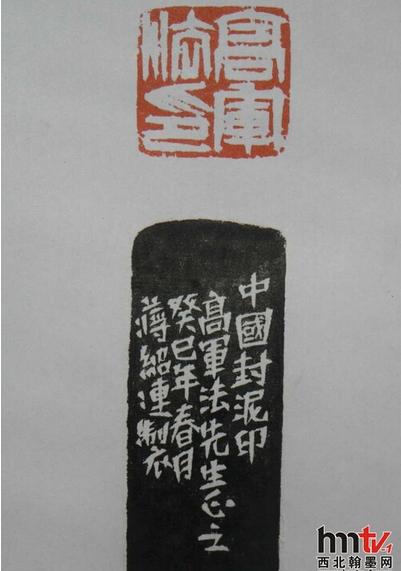 高軍
法印
中國封泥印
高軍法先生正之
癸巳年春月
蔣紹連製
hmtv-1
西北翰墨网